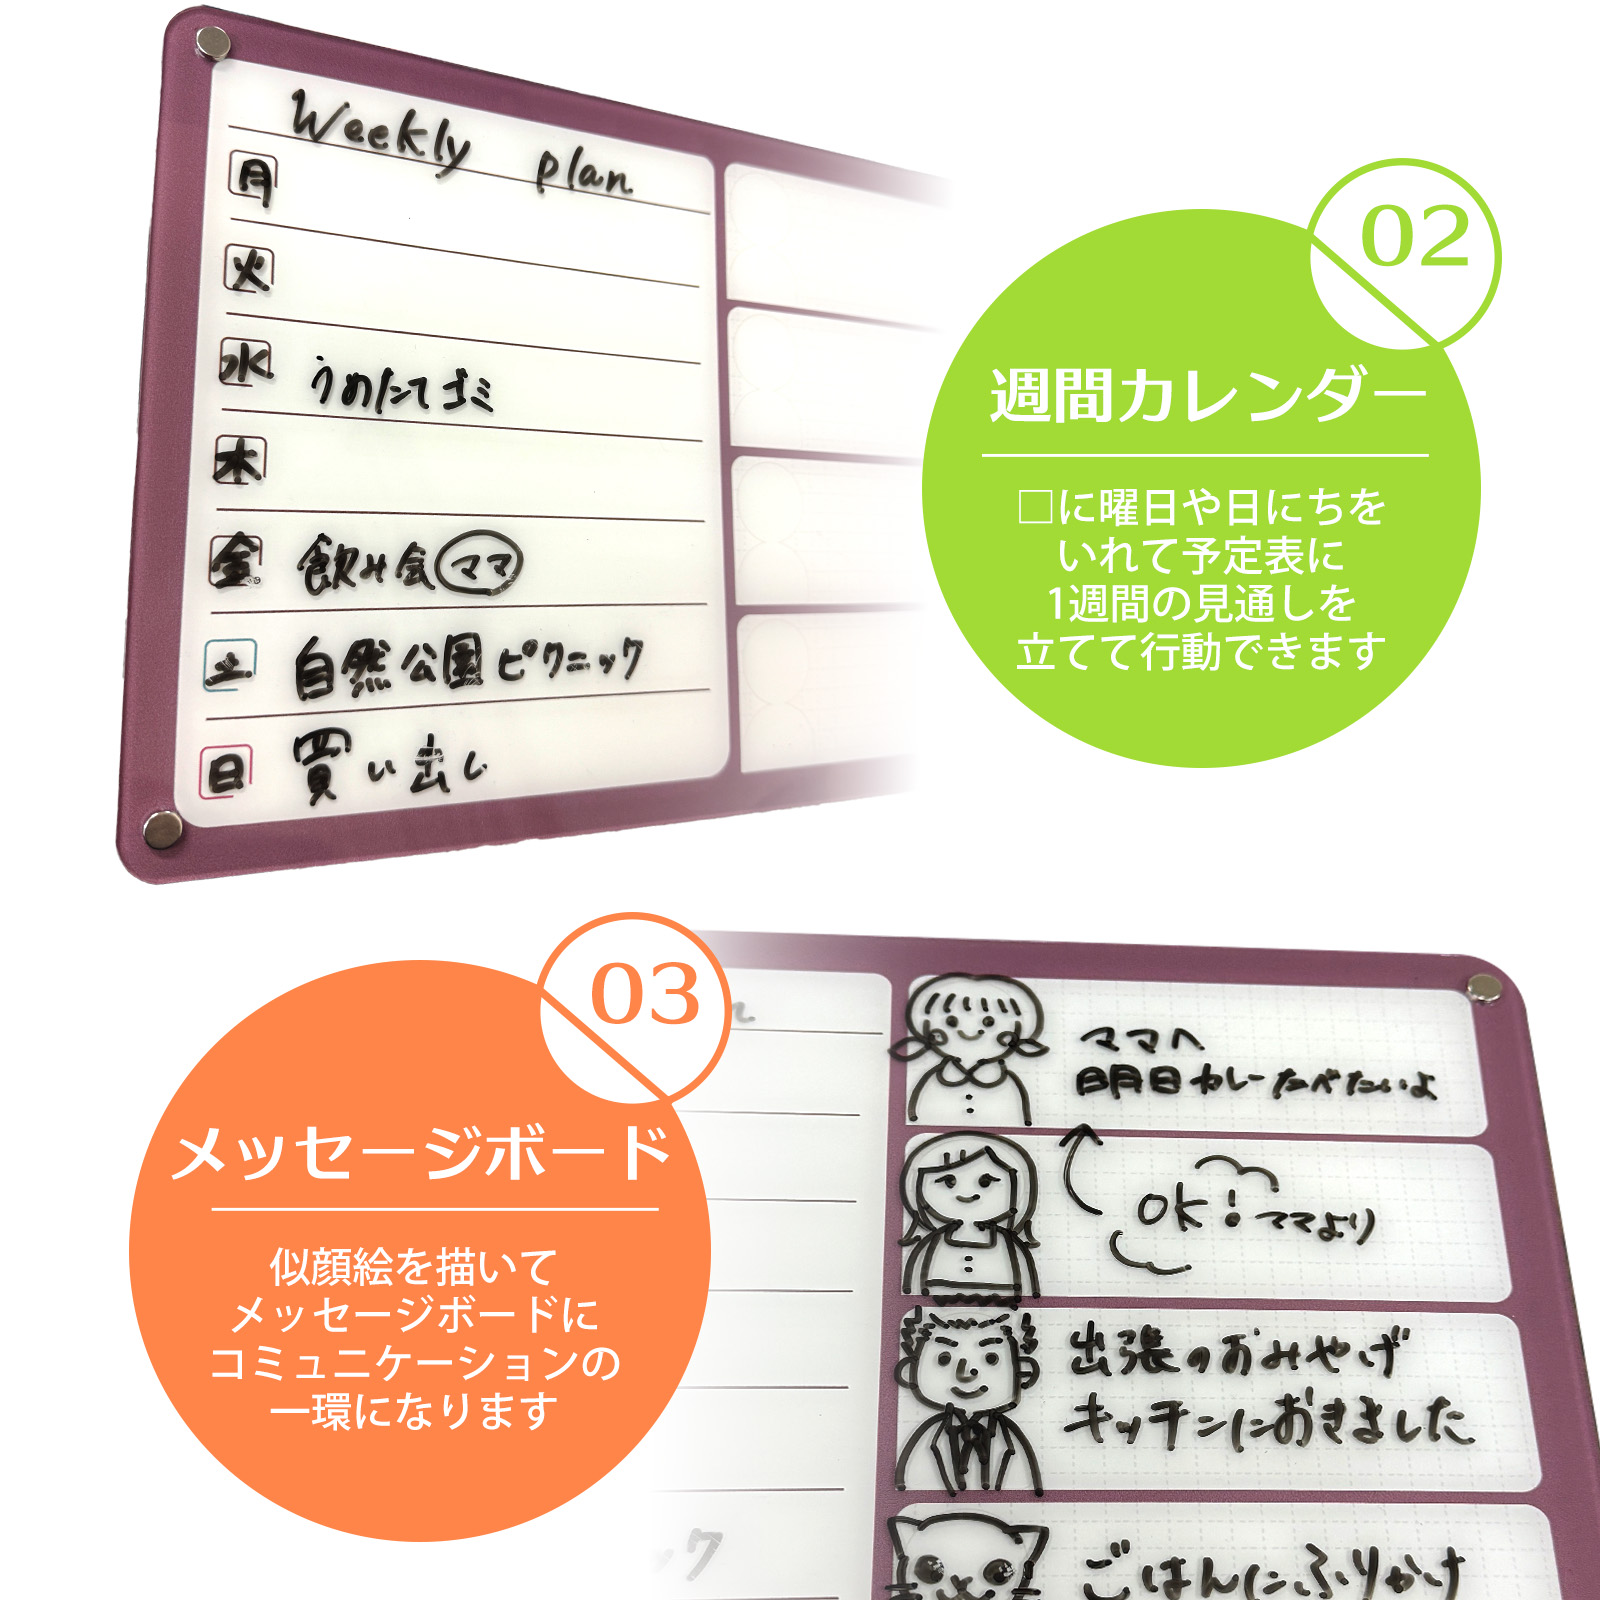 Weekly plan
月
火
水 うめたてゴミ
木
金 飲み会 ママ
土 自然公園ピクニック
日 買い出し
02
週間カレンダー
□に曜日や日にちを
いれて予定表に
1週間の見通しを
立てて行動できます
03
メッセージボード
似顔絵を描いて
メッセージボードに
コミュニケーションの
一環になります
ママへ
明日カレーたべたいよ
OK! ママより
出張のおみやげ
キッチンにおきました
ごはんにふりかけ
ック